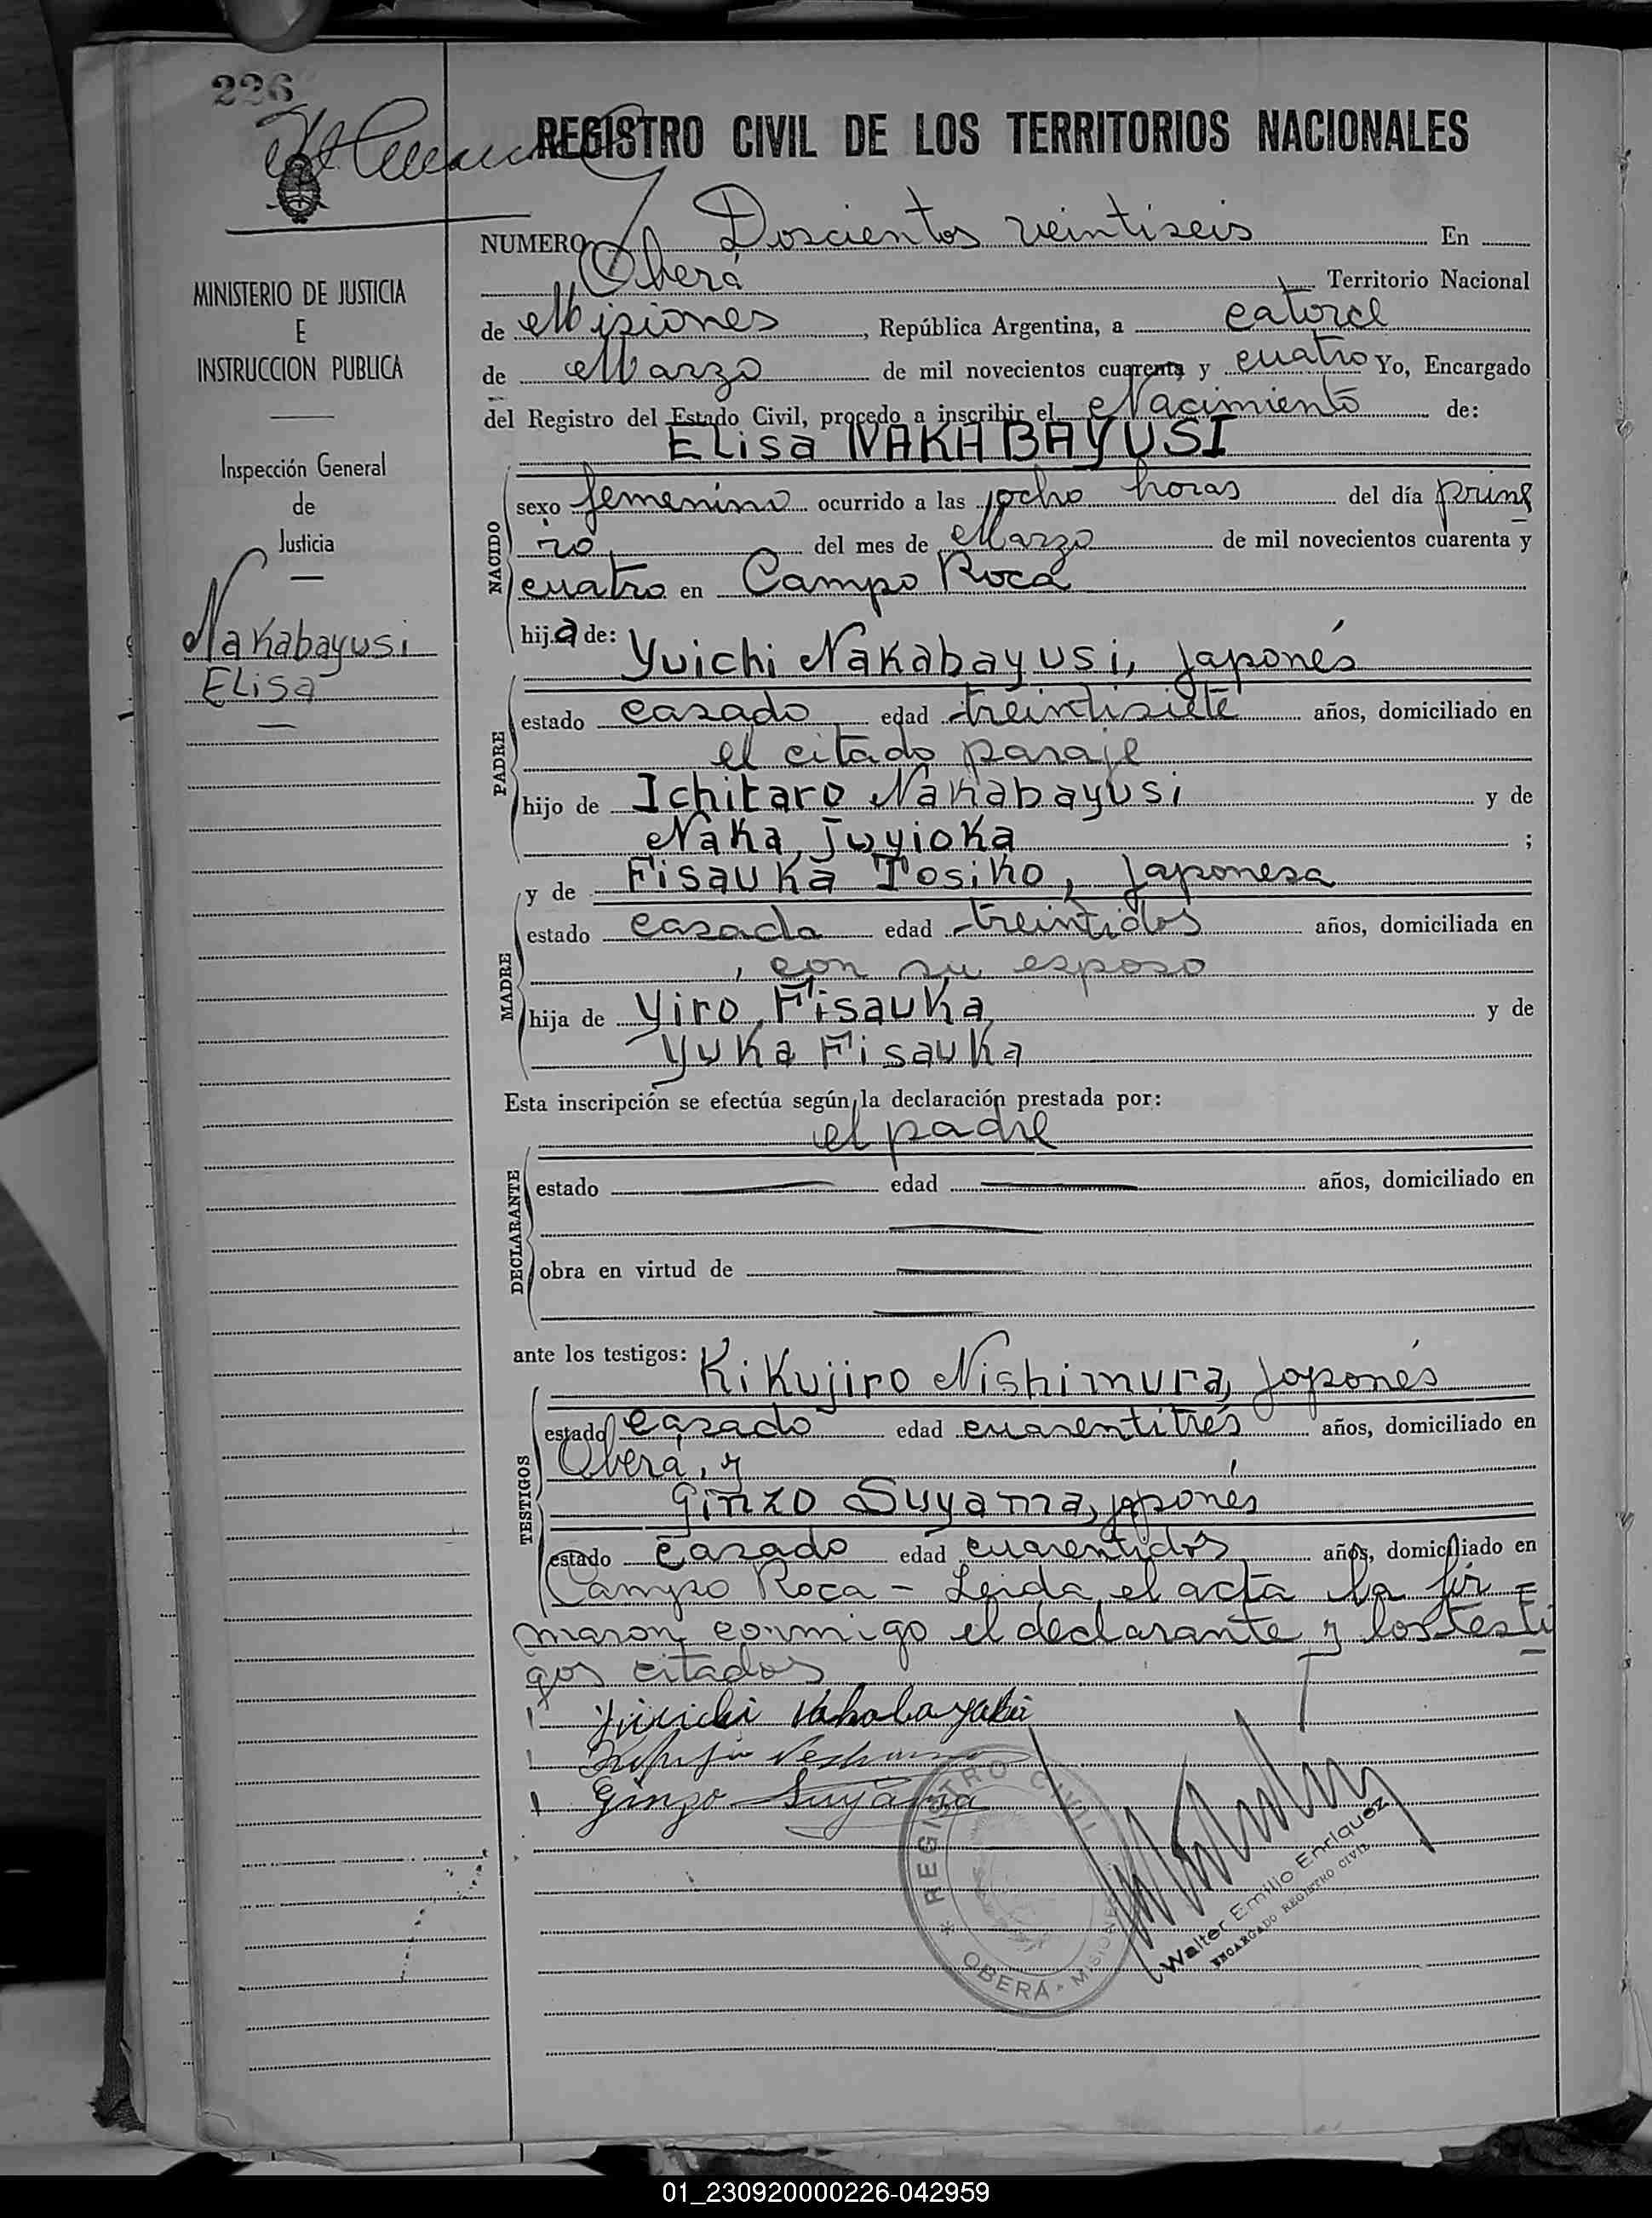 226
REGISTRO CIVIL DE LOS TERRITORIOS NACIONALES
NUMERO Doscientos veintiseis En
Oberá Territorio Nacional
de Misiones, República Argentina, a catorce
de Marzo de mil novecientos cuarenta y cuatro Yo, Encargado
del Registro del Estado Civil, procedo a inscribir el Nacimiento de:
Elisa NAKABAYUSI
MINISTERIO DE JUSTICIA
E
INSTRUCCION PUBLICA
Inspección General
de
Justicia
Nakabayusi
Elisa
NACIDO
sexo femenino ocurrido a las ocho horas del día prime
ro del mes de Marzo de mil novecientos cuarenta y
cuatro en Campo Roca
hija de: Yuichi Nakabayusi, japonés
PADRE
estado casado edad treintisiete años, domiciliado en
el citado paraje
hijo de Ichitaro Nakabayusi y de
Naka Juyioka ;
y de Fisauka Tosiko, japonesa
MADRE
estado casada edad treintidos años, domiciliada en
, con su esposo
hija de Yiro Fisauka y de
Yuka Fisauka
Esta inscripción se efectúa según la declaración prestada por:
el padre
DECLARANTE
estado edad años, domiciliado en
obra en virtud de
ante los testigos: Kikujiro Nishimura, japonés
TESTIGOS
estado casado edad cuarentitrés años, domiciliado en
Oberá, y
Ginzo Suyama, japonés
estado casado edad cuarentidós años, domiciliado en
Campo Roca - Leida el acta la fir=
maron conmigo el declarante y los testi
gos citados
Yuichi Nakabayashi
Ginzo Suyama
REGISTRO CIVIL
* OBERÁ * MISIONES
Walter Emilio Enriquez
ENCARGADO REGISTRO CIVIL
01_230920000226-042959